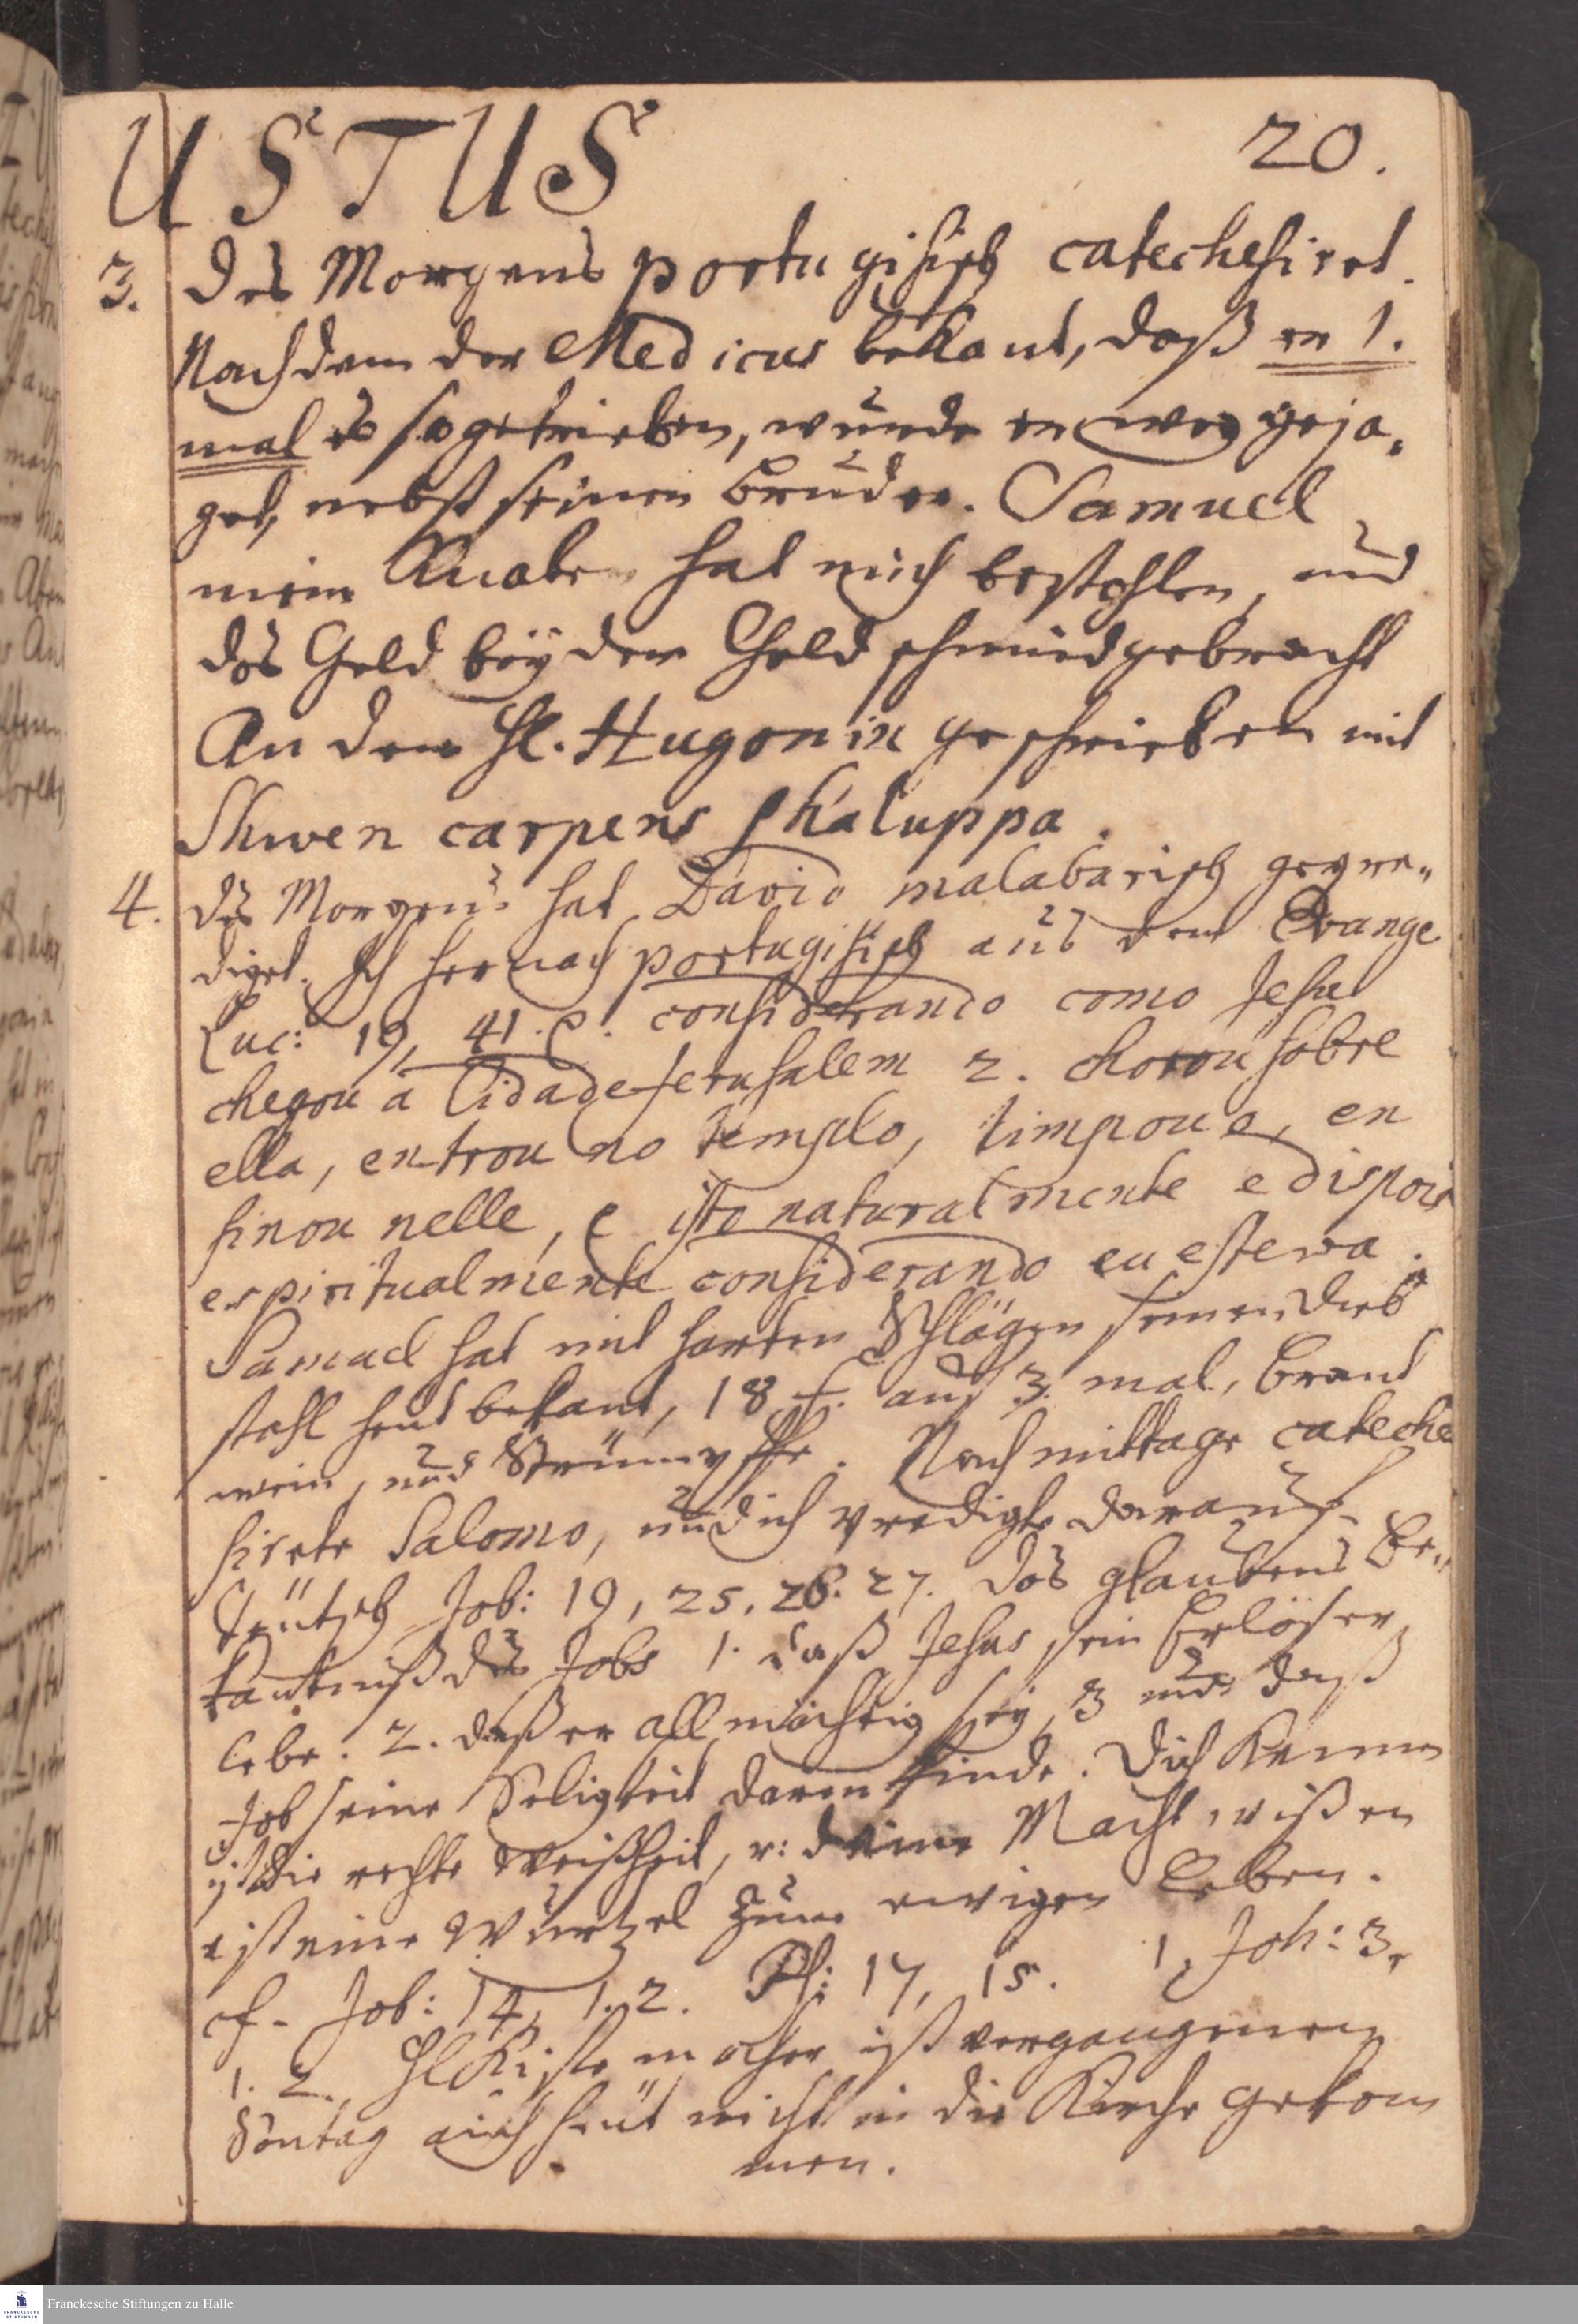 USTUS 20.
3. Des Morgens portugisisch catechesiret.
Nachdem der Medicus bekant, daß er 1.
mal es so getrieben, wurde er weg geja-
get, nebst seinen Bruder. Samuel
mein Knabe hat mich bestohlen, und
das Geld beÿ dem Goldschmied gebracht
An den H. Hugonin geschrieben mit
Shwen carpens Shaluppa.
4. Des Morgens hat David malabarisch gepre-
diget. Ich hernach portugisisch aus dem Evange
Luc: 19, 41. considerando como Jesu
chegou a Cidade Jerusalem 2. chorou sobre
ella, entrou no templo, limpou o, en
sinou nelle, e isto naturalmente e dispois
espiritualmente considerando eu esteva.
Samuel hat mit harten Schlägen seinen Dieb
stahl heut bekant, 18 f. auf 3. mal, Brand
wein, und Strümpffe. Nachmittage cateche
sirete Salomo, und ich predigte darauf
Teutsch Job: 19, 25. 26. 27. das glaubens Be-
käntniß des Jobs 1. daß Jesus sein Erlöser
lebe. 2. daß er allmächtig seÿ, 3 und daß
Job seine Seligkeit darin finde. Dich Kennen
ist die rechte Weißheit, u: deine Macht wißen
ist eine Wurtzel zum ewigen Leben.
cf. Job: 14, 1. 2. Ps: 17, 15. 1. Joh: 3,
1. 2. H Kistemacher ist vergangenen
Sontag auch heut nicht in die Kirche gekom
men.
Franckesche Stiftungen zu Halle